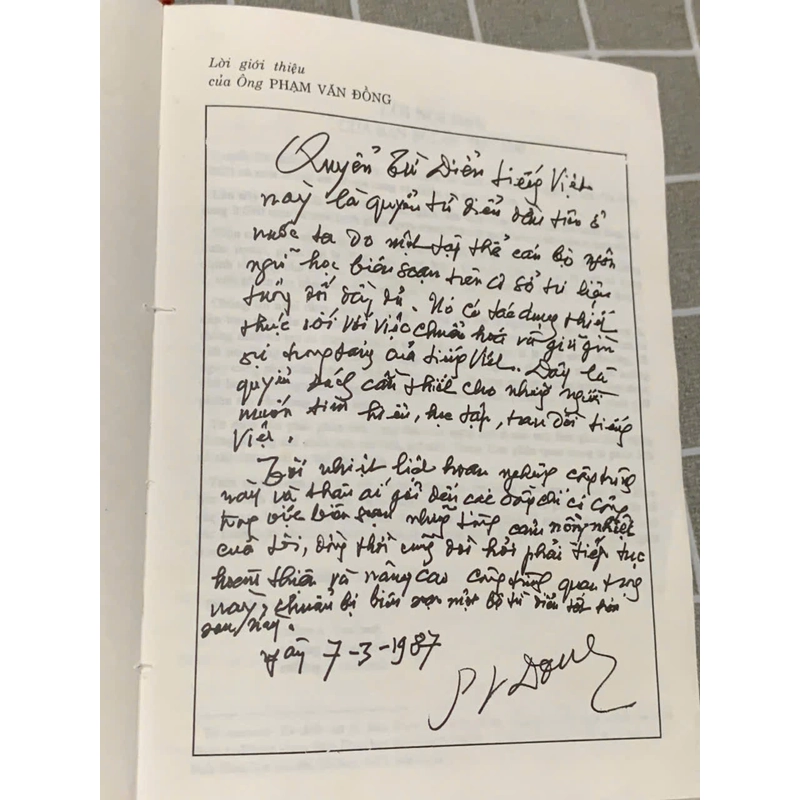 Lời giới thiệu
của Ông PHẠM VĂN ĐỒNG
Quyển Từ Điển tiếng Việt
này là quyển từ điển đầu tiên ở
nước ta do một tập thể cán bộ ngôn
ngữ học biên soạn trên cơ sở tư liệu
tương đối đầy đủ. Nó có tác dụng thiết
thực đối với việc chuẩn hoá và giữ gìn
sự trong sáng của tiếng Việt. Đây là
quyển sách cần thiết cho những người
muốn tìm hiểu, học tập, trau dồi tiếng
Việt.
Tôi nhiệt liệt hoan nghênh công trình
này và thân ái gởi đến các đồng chí có công
trong việc biên soạn những tình cảm nồng nhiệt
của tôi, đồng thời cũng đòi hỏi phải tiếp tục
hoàn thiện và nâng cao công trình quan trọng
này, chuẩn bị biên soạn một bộ từ điển tốt hơn
sau này.
Ngày 7-3-1987
PVDong